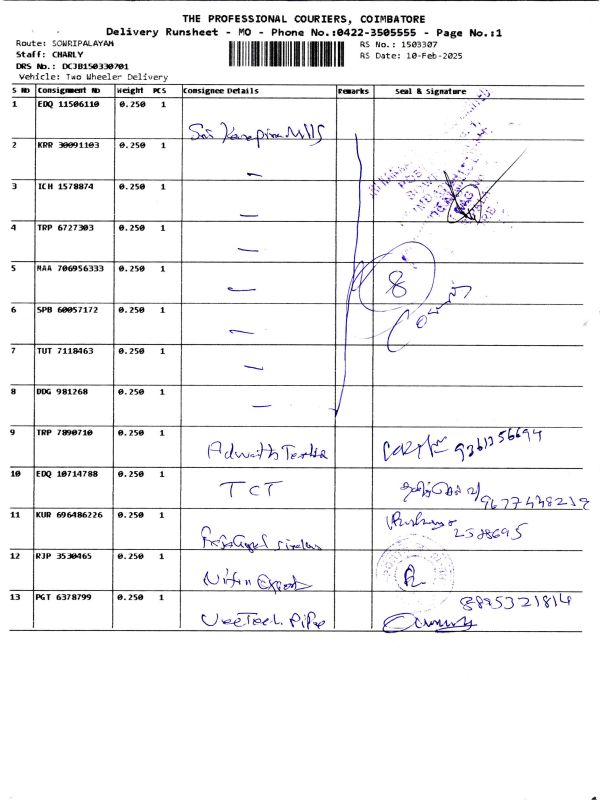 THE PROFESSIONAL COURIERS, COIMBATORE
Delivery Runsheet - MO - Phone No.:0422-3505555 - Page No.:1
Route: SOWRIPALAYAM
RS No.: 1503307
Staff: CHARLY
RS Date: 10-Feb-2025
DRS No.: DCJB150330701
Vehicle: Two Wheeler Delivery
S No Consignment No Weight PCS Consignee Details Remarks Seal & Signature
1 EDQ 11506110 0.250 1
2 KRR 30091103 0.250 1
3 ICH 1578874 0.250 1
4 TRP 6727303 0.250 1
5 MAA 706956333 0.250 1
8
6 SPB 60057172 0.250 1
7 TUT 7118463 0.250 1
8 DDG 981268 0.250 1
9 TRP 7890710 0.250 1
9361356694
10 EDQ 10714788 0.250 1 TCT
11 KUR 696486226 0.250 1
12 RJP 3530465 0.250 1
13 PGT 6378799 0.250 1 8895321814